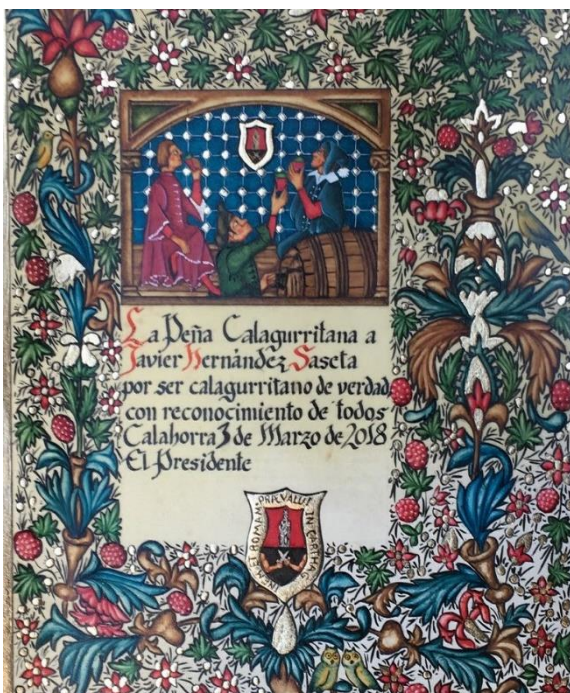 La Peña Calagurritana a
Javier Hernández Saseta
por ser calagurritano de verdad
con reconocimiento de todos
Calahorra 3 de Marzo de 2018
El Presidente
PRÆVALUI IN CARTHAG